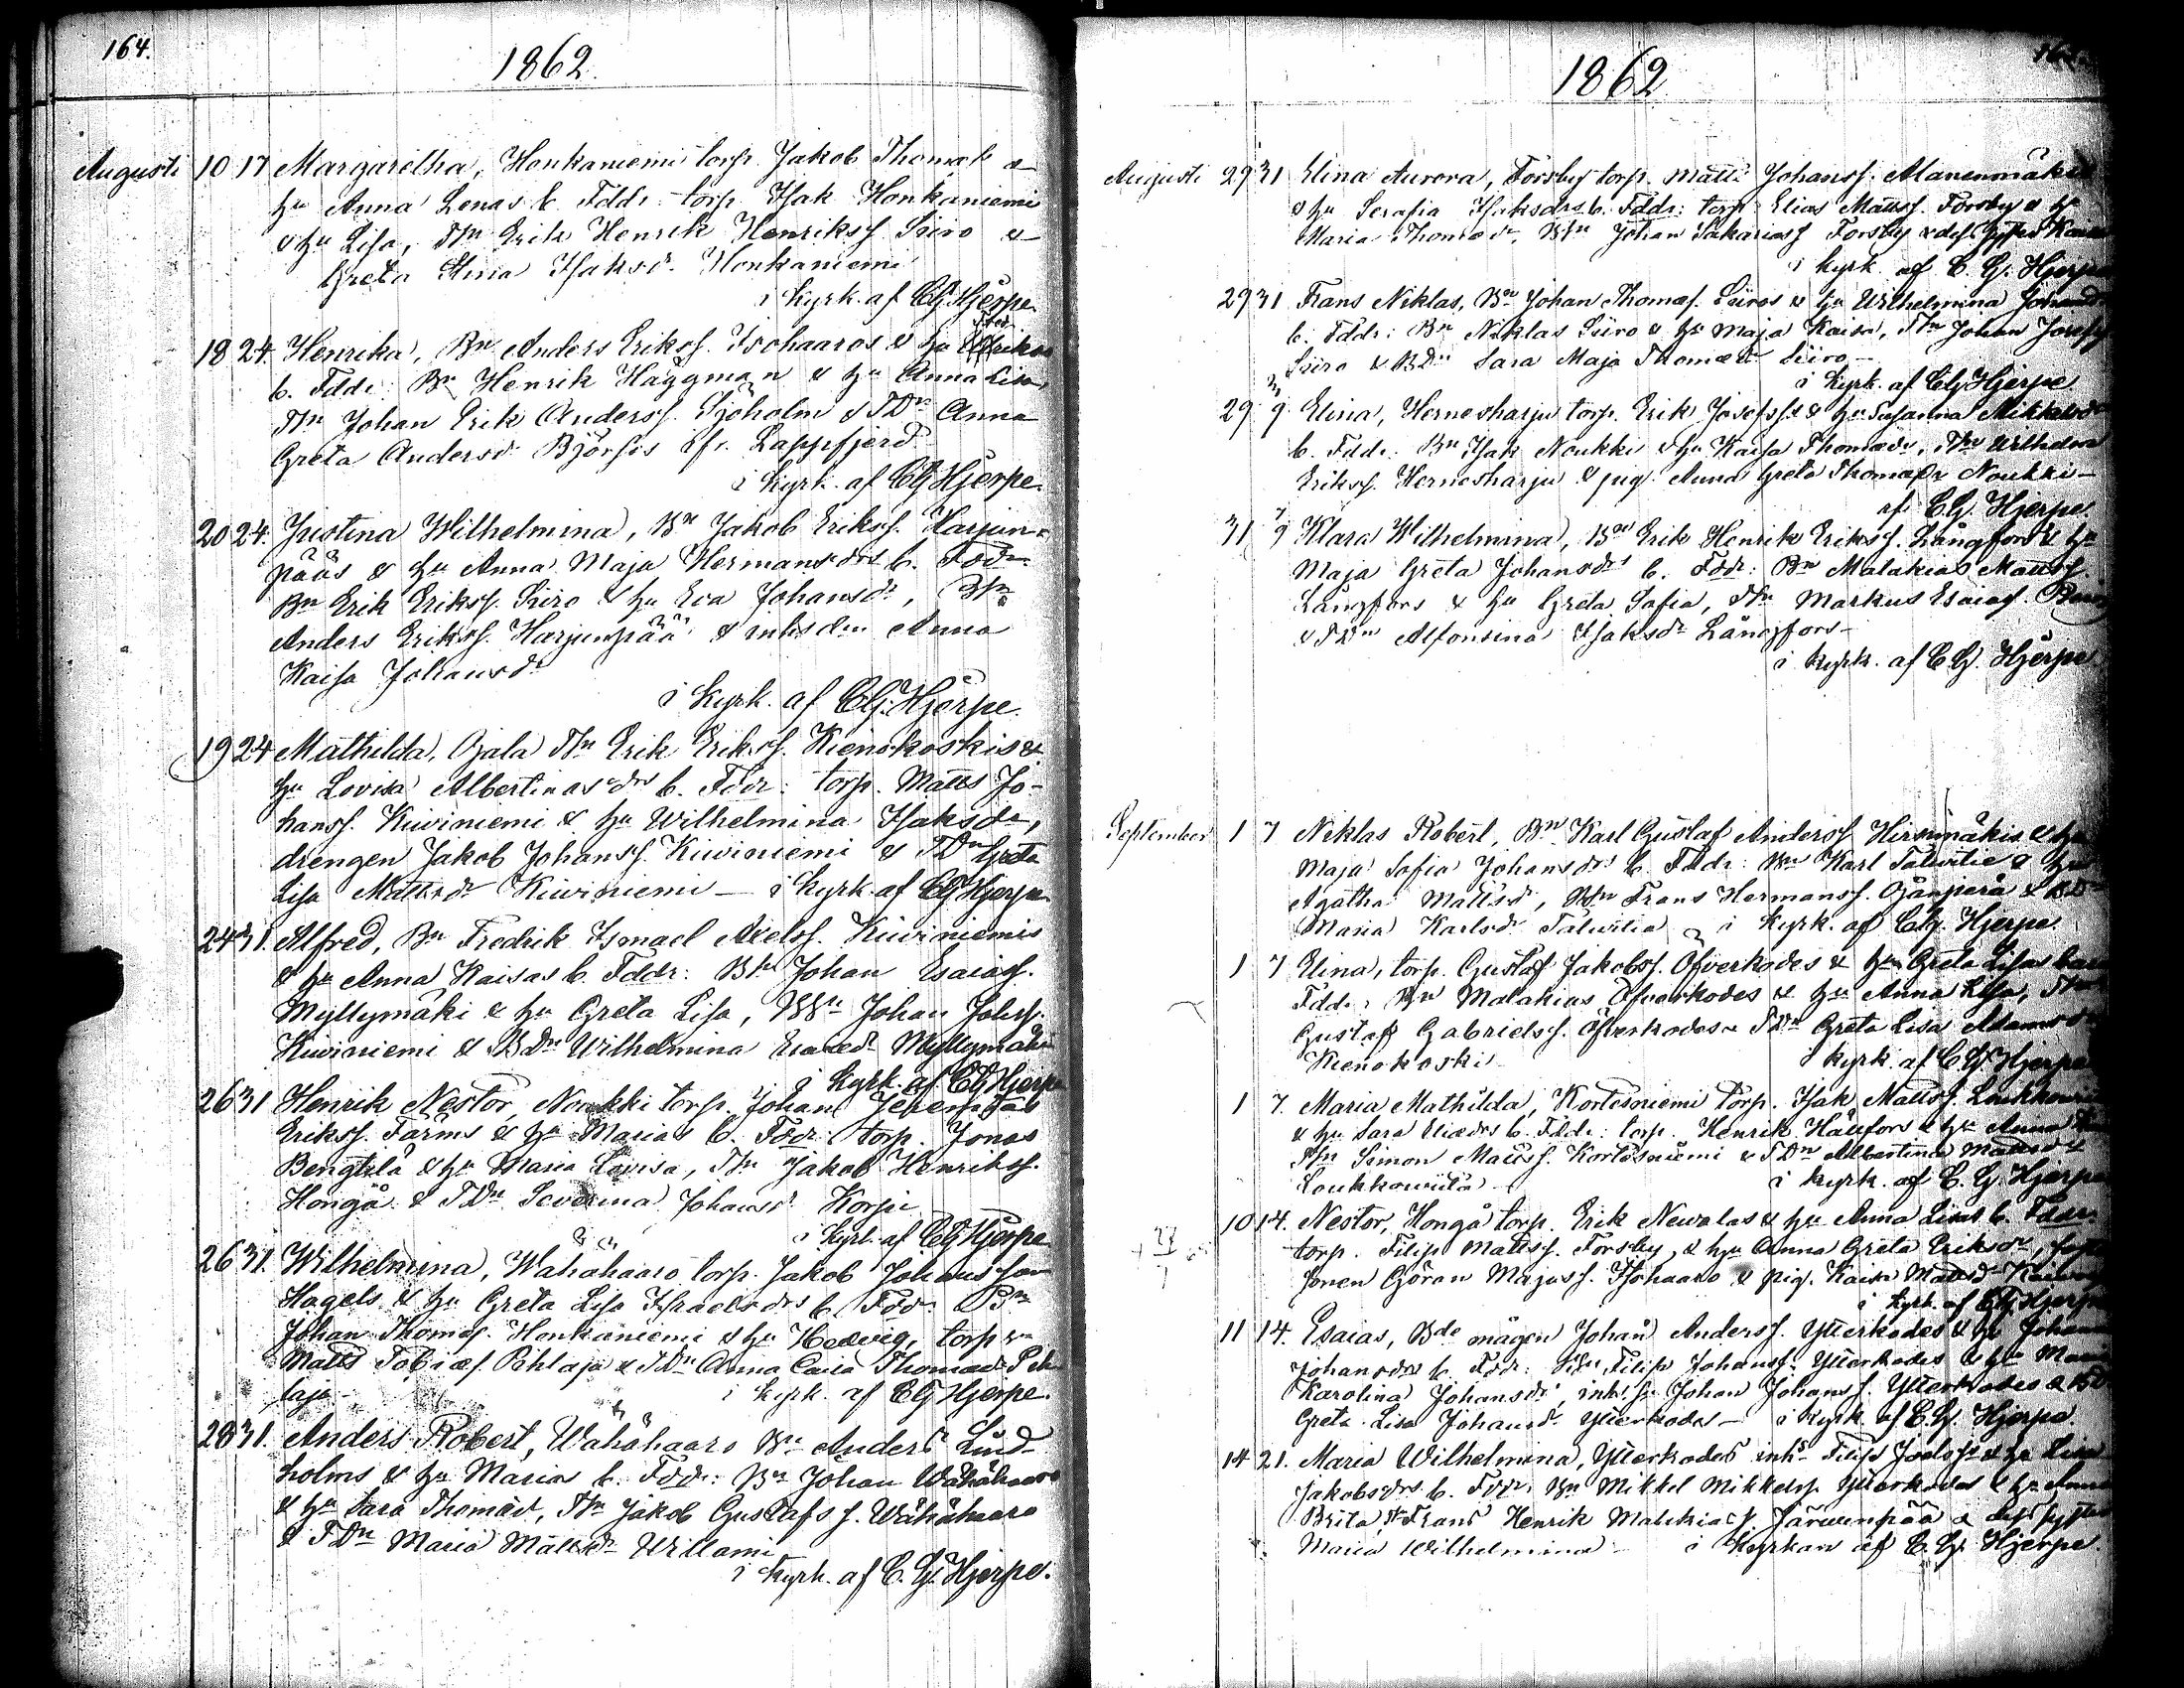 164.
1862.
Augusti 10 17 Margaretha, Honkaniemi torp. Jakob Thomæs. &
hu Anna Lenas b. Fddr torp. Isak Honkaniemi
& hu Lisa, Dn Erik Henrik Henrikss. Siiro &
Greta Stina Isaksdr Honkaniemi
i kyrk. af CGHjerpe.
18 24. Henrika, Bn Anders Erikss. Isohaaros & hu
b. Fddr: Bn Henrik Häggman & hu Anna Lisa,
Dn Johan Erik Anderss. Sjöholm & TDn Anna
Greta Andersdr Björsis fr. Lappfjerd
i kyrk. af CGHjerpe.
20 24. Justina Wilhelmina, Bn Jakob Erikss. Harjun-
pääs & hu Anna Maja Hermansdrs b. Fddr
Bn Erik Erikss. Siiro & hu Eva Johansdr,
Anders Erikss. Harjunpää & inhsdn Anna
Kaisa Johansdr
i kyrk. af CG.Hjerpe.
19 24 Mathilda, Ojala Dn Erik Erikss. Kienokoskis &
hu Lovisa Albertinas b. Fddr: torp. Matts Jo-
hanss. Kiwiniemi & hu Wilhelmina Isaksdr,
drengen Jakob Johanss. Kiwiniemi & TDn Greta
Lisa Mattsdr Kiwiniemi — i kyrk. af CGHjerpe
24 31. Alfred, Bn Fredrik Ismael Axelss. Kiwiniemis
& hu Anna Kaisas b. Fddr: Bn Johan Esaiass.
Myllymäki & hu Greta Lisa, Johan
Kiwiniemi & BDn Wilhelmina Esaiædr Myllymäki
i kyrk. af CGHjerpe
26 31 Henrik Nestor, Noukki torp. Johan Jeremias
Erikss. Färms & hu Marias b. Fddr: torp. Jonas
Bengtslå & hu Maria Lovisa, Dn Jakob Henrikss.
Hongå & TDn Severina Johansdr Korpi
i kyrk. af CGHjerpe
26 31. Wilhelmina, Wähähaaro torp. Jakob Johansson
Hagels & hu Greta Lisa Israelsdrs b. Fddr Bn
Johan Thomæs. Honkaniemi & hu Hedvig, torp.
Matts Tobiæs. Pihlaja & TDn Anna Caisa Thomædr Pih
laja — i kyrk. af CGHjerpe.
28 31. Anders Robert, Wähähaaro Bn Anders Lind-
holms & hu Marias b. Fddr: Bn Johan Wähähaaro
& hu Sara Thomædr, Dn Jakob Gustafss. Wähähaaro
& TDn Maria Mattsdr Willami
i kyrk. af C.G.Hjerpe.
1862
Augusti 29 31 Elina Aurora, Forsby torp. Matts Johanss. Alanenmäkis
& hu Serafia Isaksdrs b. Fddr: torp. Elias Mattss. Forsby & hu
Maria Thomædr, Johan Sakariass Forsby & dess hustru
i kyrk. af C.G. Hjerpe
29 31 Frans Niklas, Bn Johan Thomæs. Siiros & hu Wilhelmina
b. Fddr: Bn Niklas Siiro & hu Maja Kaisa, Dn Johan Josefss
Siiro & BDn Sara Maja Thomædr Siiro —
i kyrk. af CGHjerpe
29 9 Elina, Hernesharju torp. Erik Josefss. & hu Susanna Mikkelsdr
b. Fddr: Bn Isak Noukki & hu Kaisa Thomædr, Dn Wilhelm
Erikss. Hernesharju & pig. Anna Greta Thomædr Noukki —
af CG. Hjerpe
31 9 Klara Wilhelmina, Bn Erik Henrik Erikss. Långfors & hu
Maja Greta Johansdrs b. Fddr: Bn Malakias Mattss.
Långfors & hu Greta Sofia, Dn Markus Esaiass.
& TDn Alfonsina Isaksdr Långfors —
i kyrk. af C.G. Hjerpe
September 1 7 Niklas Robert, Bn Karl Gustaf Anderss. Hirsimäkis & hu
Maja Sofia Johansdrs b. Fddr: Bn Karl Talwitie & hu
Agatha Mattsdr, Frans Hermanss. Ojanperä & BDn
Maria Karlsdr Talwitie i kyrk. af CG. Hjerpe.
1 7 Elina, torp. Gustaf Jakobss. Öfverkodes & hu Greta Lisas barn
Fddr: Bn Malakias Öfverkodes & hu Anna Lisa, Dn
Gustaf Gabrielss. Öfverkodes & TDn Greta Lisa Adamsdr
Kienokoski i kyrk. af CGHjerpe
1 7. Maria Mathilda, Kortesniemi torp. Isak Mattss.
& hu Sara Eliædrs b. Fddr: torp. Henrik Hällfors & hu Anna
Dn Simon Mattss. Kortesniemi & TDn Albertina Mattsdr
i kyrk. af C.G. Hjerpe
10 14. Nestor, Hongå torp. Erik Newalas & hu Anna Lisas b. Fddr.
torp. Filip Mattss. Forsby & hu Anna Greta Eriksdr,
sonen Göran Majass. Isohaaro & pig. Kaisa Mattsdr
i kyrk. af CGHjerpe
11 14. Esaias, Bde mågen Johan Anderss. Ytterkodes & hu Johanna
Johansdrs b. Fddr: Filip Johanss. Ytterkodes & hu Maria
Karolina Johansdr, inhs. Johan Johanss. Ytterkodes & BD
Greta Lisa Johansdr Ytterkodes — i kyrk. af C.G. Hjerpe
14 21. Maria Wilhelmina, Ytterkodes inhs Filip Joelss. & hu Lisa
Jakobsdrs b. Fddr. Bn Mikkel Mikkelss. Ytterkodes & hu Anna
Brita, Frans Henrik Malakiass. Järwenpää & dess hustru
Maria Wilhelmina i kyrkan af C.G. Hjerpe